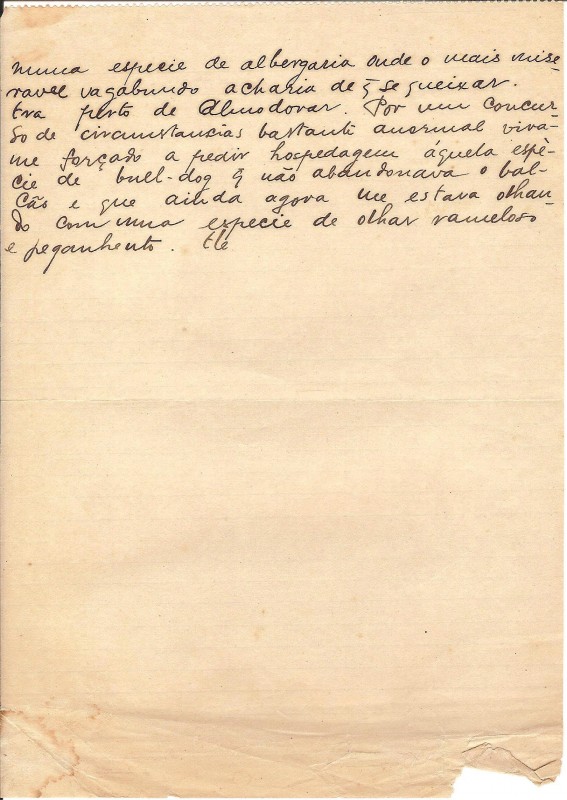 numa especie de albergaria onde o mais mise-
ravel vagabundo acharia de q̃ se queixar.
Era perto de Almodovar. Por um concur-
so de circumstansias bastante anormal vira-
me forçado a pedir hospedagem áquela espè-
cie de bull-dog q̃ não abandonava o bal-
cão e que ainda agora me estava olhan-
do com uma especie de olhar rameloso
e peganhento. Ele